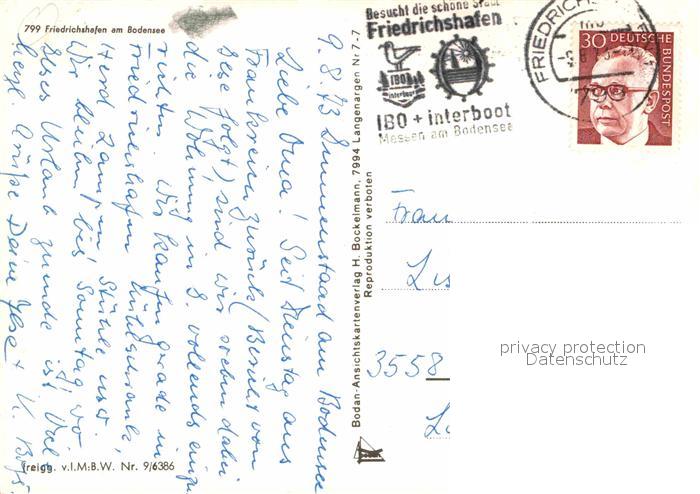 799 Friedrichshafen am Bodensee
Besucht die schöne Stadt
Friedrichshafen
IBO
interboot
IBO + interboot
Messen am Bodensee
FRIEDRICHSHAFEN
30 DEUTSCHE
BUNDESPOST
9.8.73 Immenstaad am Bodensee
Liebe Oma! Seit Dienstag aus
Frankreich zurück (Bericht von
Reise folgt) sind wir dabei
die Wohnung in 8. vollends einzu
richten. Wir kaufen gerade in
Friedrichshafen Kühlschrank,
Herd, Lampen Stühle usw.
Wir bleiben bis Sonntag wo
dieser Urlaub zuende ist. Viele
herzl. Grüße Deine Ilse + K.
Bodan-Ansichtskartenverlag H. Bockelmann, 7994 Langenargen Nr 7-7
Reproduktion verboten
Frau
3558
privacy protection
Datenschutz
freigg. v.I.M.B.W. Nr. 9/6386